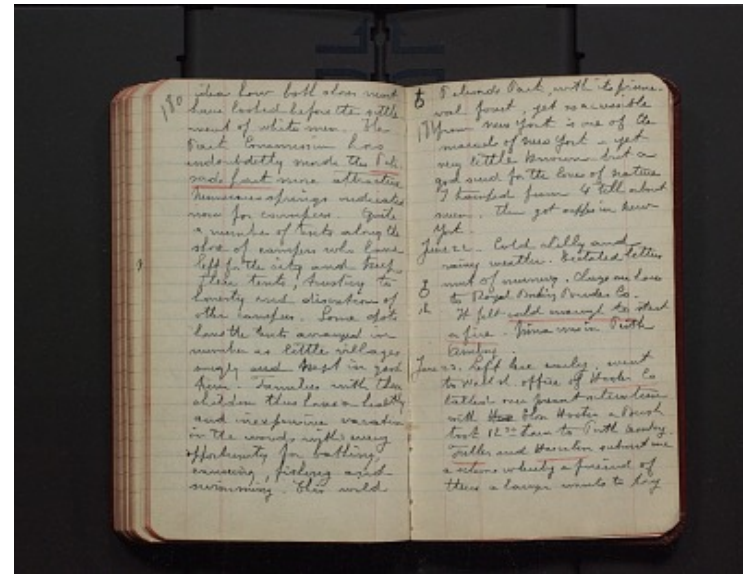 180
idea how both shores must
have looked before the settle
ment of white men. The
Park Commission has
undoubtedly made the Pali-
sade park more attractive
Numerous springs indicated
now for campers. Quite
a number of tents along the
shore of campers who have
left for the city and keep
their tents, trusting to
honesty and discretion of
other campers. Some spots
have the tents arranged in
number as little villages
snugly and kept in good
Families with their
children thus have a healthy
and inexpensive vacation
in the woods with every
opportunity for bathing,
canoeing, fishing and
swimming. This wild
Palisade Park, with its prime-
val forest, yet so accessible
181 from New York is one of the
marvels of New York & yet
very little known but a
god send for the lover of nature
I tramped from 4 till about
seven. Then got supper in New
York.
June 22. Cold chilly and
rainy weather. Dictated letters
most of morning.
to Royal Baking Powder Co.
It felt cold enough to start
a fire. Nina was in Perth
Amboy.
June 23. Left here early, went
to Wall St office of Hooker Co
talked over present situation
with Elon Hooker &
took 12:30 train to Perth Amboy.
and submit me
a scheme whereby a friend of
theirs a lawyer wants to buy